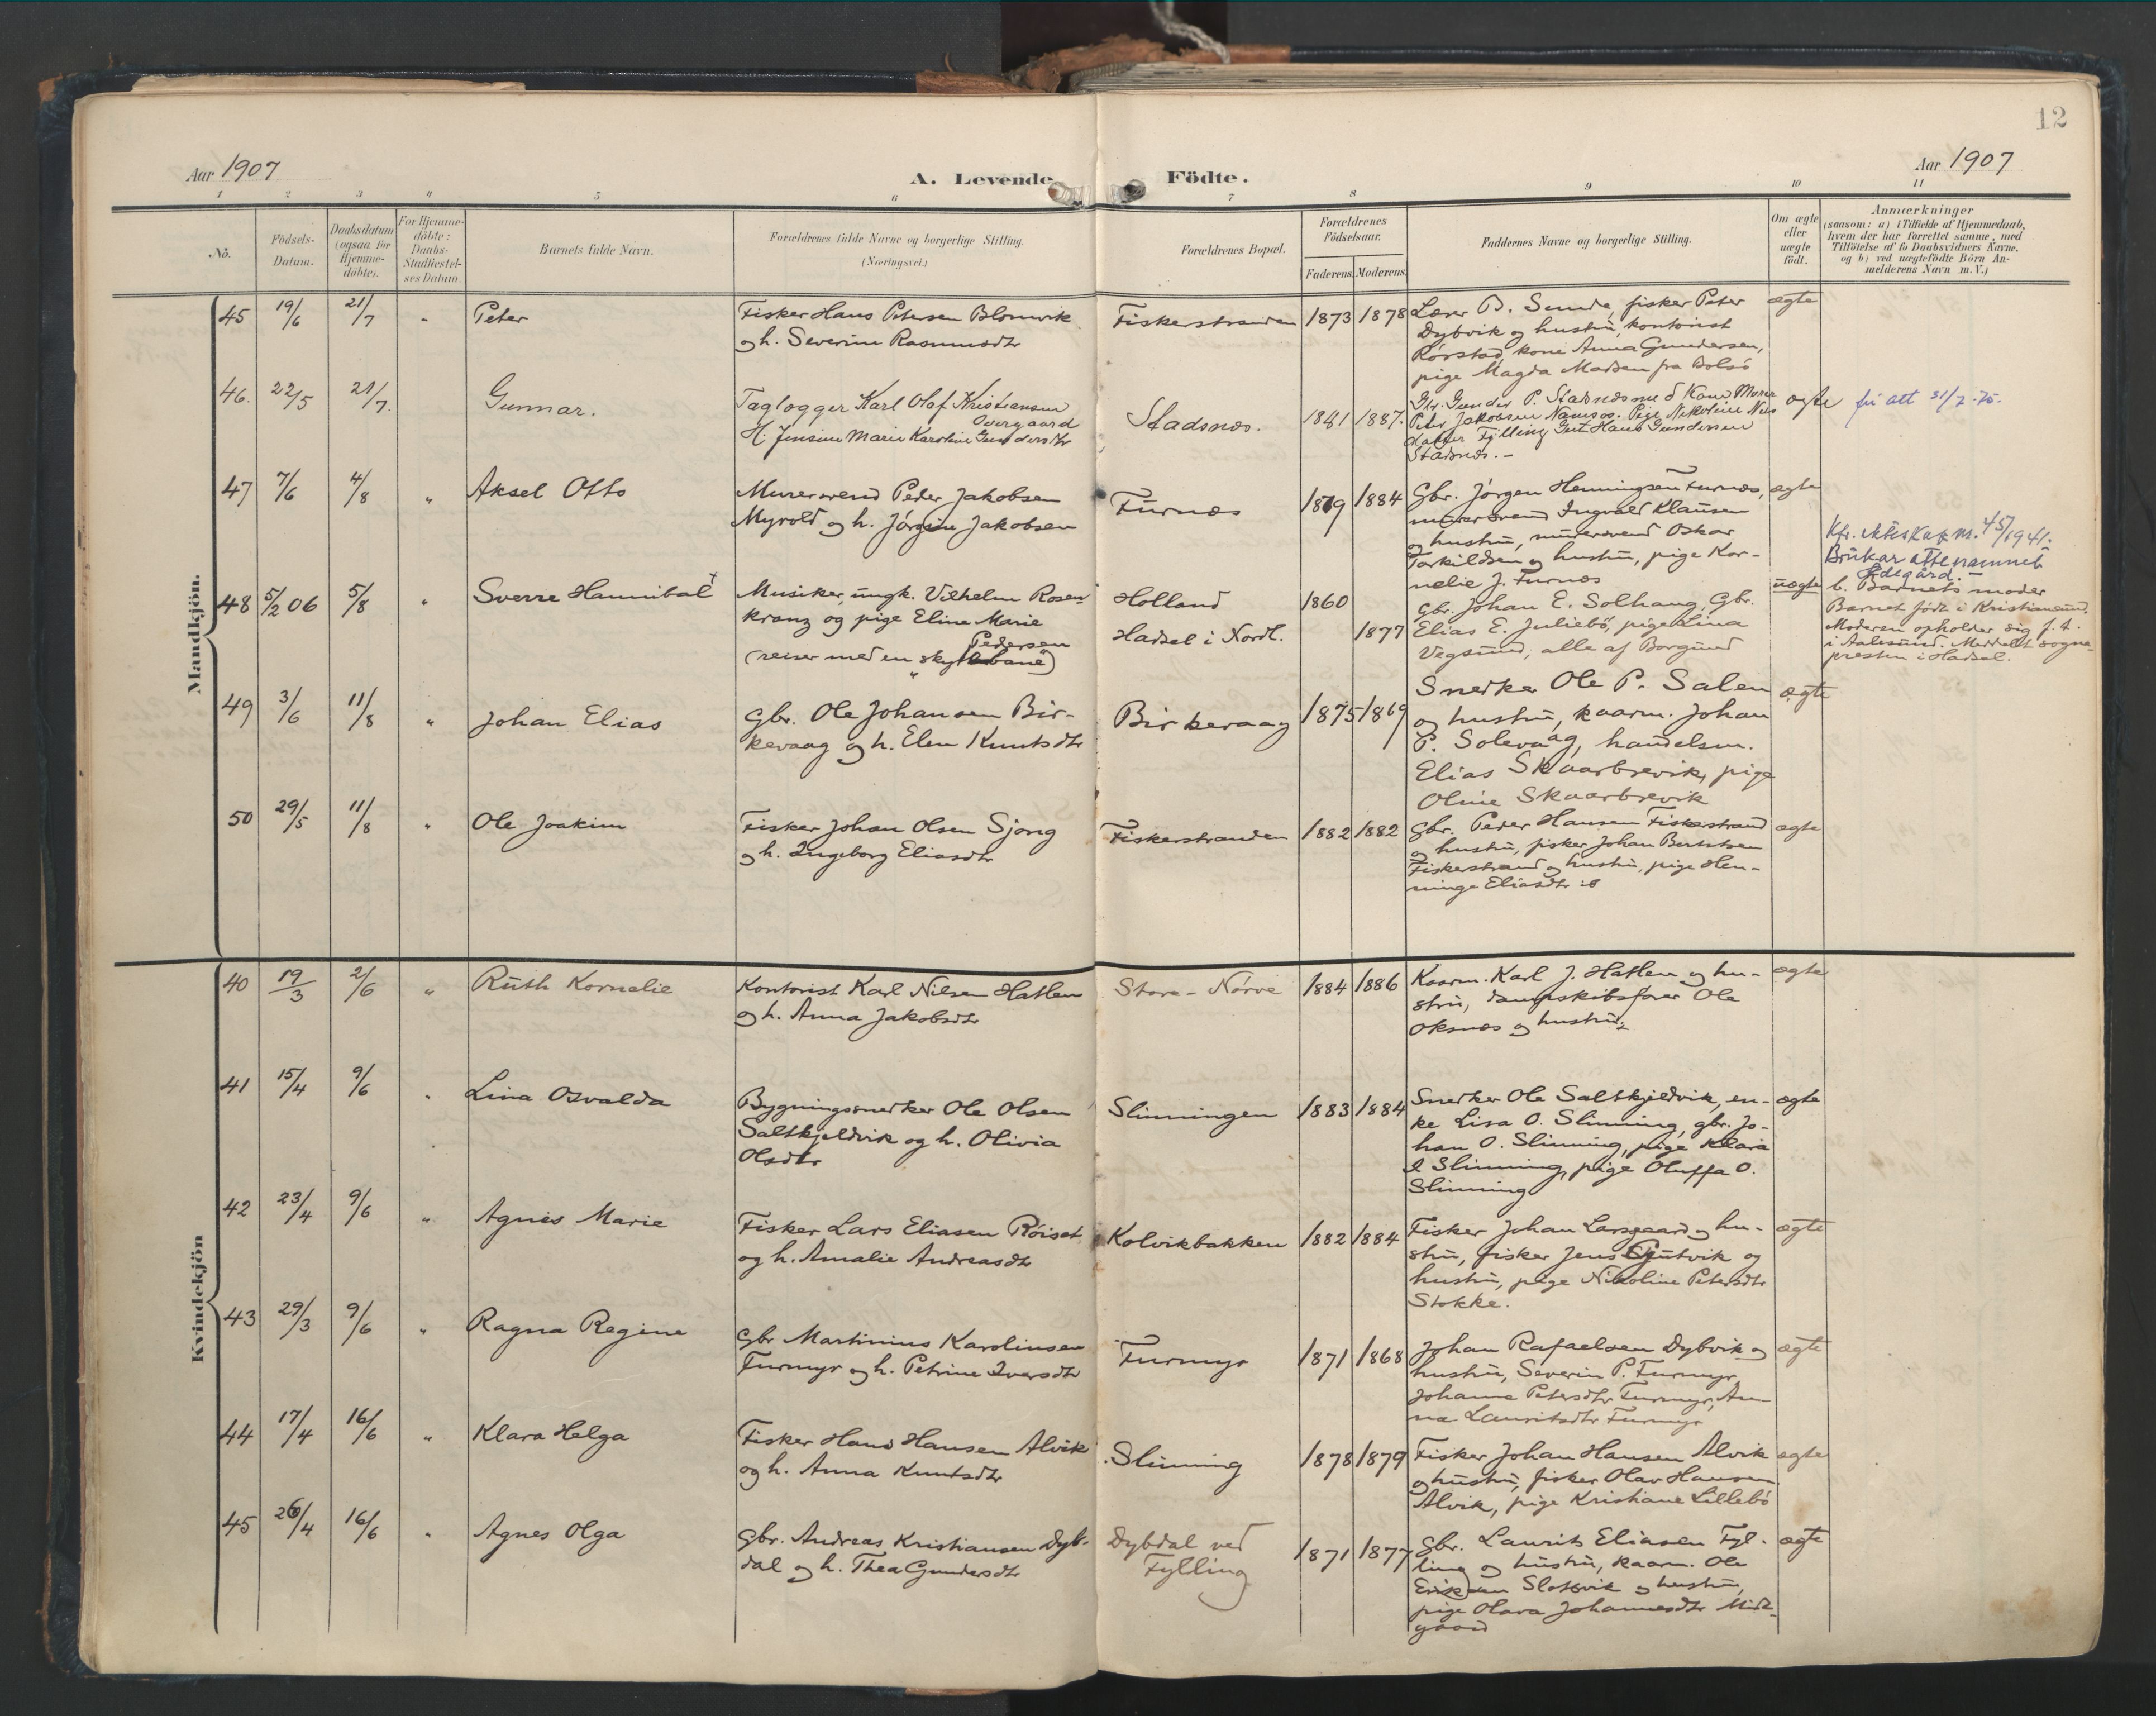 12
Aar 1907
A. Levende
Födte.
Aar 1907
1 2 3 4 5 6 7 8 9 10 11
No.
Födsels-
Datum.
Daabsdatum
(ogsaa for
Hjemme-
döbte).
For Hjemme-
döbte:
Daabs-
Stadfæstel-
ses Datum.
Barnets fulde Navn.
Forældrenes fulde Navne og borgerlige Stilling.
(Næringsvei.)
Forældrenes Bopæl.
Forældrenes
Födselsaar.
Faderens. Moderens.
Faddernes Navne og borgerlige Stilling.
Om ægte
eller
uægte
födt.
Anmærkninger
(saasom: a) i Tilfælde af Hjemmedaab,
hvem der har forrettet samme, med
Tilföielse af to Daabsvidners Navne,
og b) ved uægtefödte Börn An-
melderens Navn m. V.)
Mandkjön.
45 19/6 21/7 " Peter
Fisker Hans Petersen Blomvik
og h. Severine Rasmusdtr
Fiskerstranden 1873 1878
Lærer B. Sunde, fisker Peter
Dybvik og hustru, kontorist
Rörstad, kone Anna Gundersen,
pige Magda Madsen fra Bolsö
ægte
46. 22/5 21/7. Gunnar.
Taglægger Karl Olaf Kristiansen
Overgaard
H. Jensine Marie Karoline Gundersdtr
Stadsnes. 1881 1887.
Gbr. Gunder P. Stadsnes
Peter Jakobsen Namsos. Pige Nikoline Nils
datter Fylling Hans Gundersen
Stadsnes. -
ægte
47 7/6 4/8 " Aksel Otto
Murersvend Peder Jakobsen
Myrold og h. Jörgine Jakobsen
Furnes 1879 1884
Gbr. Jörgen Henningsen Furnes,
murersvend Ingvald Klausen
og hustru, murersvend Oskar
Torkildsen og hustru, pige Kor-
nelie J. Furnes
ægte
48 5/2 06 5/8 " Sverre Hannibal
Musiker, ungk. Vilhelm Rosen-
kranz og pige Eline Marie
Pedersen
(reiser med en skydebane)
Holland 1860
Hadsel i Nordl. 1877
Gbr. Johan E. Solhaug, Gbr.
Elias E. Juliebö, pige Lina
Vegsund, alle af Borgund
uægte
Brukar ettenamnet
Ødegård. -
b. Barnets moder
Barnet födt i Kristiansund.
Moderen opholder sig f. t.
i Aalesund. Meddelt sogne-
presten i Hadsel.
49 3/6 11/8 " Johan Elias
Gbr. Ole Johansen Bir-
kevaag og h. Elen Knutsdtr
Birkevaag 1875 1869
Snedker Ole P. Salen
og hustru, kaarm. Johan
P. Solevaag, handelsm.
Elias Skaarbrevik, pige
Oline Skaarbrevik
ægte
50 29/5 11/8 " Ole Joakim
Fisker Johan Olsen Sjong
og h. Ingeborg Eliasdtr
Fiskerstranden 1882 1882
Gbr. Peder Hansen Fiskerstrand
og hustru, fisker Johan Berntsen
Fiskerstrand og hustru, pige Hen-
ninge Eliasdtr ib
ægte
Kvindekjön
40 19/3 2/6 " Ruth Kornelie
Kontorist Karl Nilsen Hatlen
og h. Anna Jakobsdtr
Store-Nörve 1884 1886
Kaarm. Karl J. Hatlen og hu-
stru, dampskibsförer Ole
Oksnes og hustru
ægte
41 15/4 9/6 " Lina Osvalda
Bygningssnedker Ole Olsen
Saltkjeldvik og h. Olivia
Olsdtr
Slinningen 1883 1884
Snedker Ole Saltkjeldvik, en-
ke Lisa O. Slinning, gbr. Jo-
han O. Slinning, pige Klara
I Slinning, pige Oluffa O.
Slinning
ægte
42 23/4 9/6 " Agnes Marie
Fisker Lars Eliasen Röiset
og h. Amalie Andreasdtr
Kolvikbakken 1882 1884
Fisker Johan Larsgaard og hu-
stru, fisker Jens Gjutvik og
hustru, pige Nikoline Petersdtr
Stokke.
ægte
43 29/3 9/6 " Ragna Regine
Gbr Martinius Karolinsen
Furmyr og h. Petrine Iversdtr
Furmyr 1871 1868
Johan Rafaelsen Dybvik og
hustru, Severin P. Furmyr,
Johanne Petersdtr Furmyr, An-
na Lauritsdtr Furmyr
ægte
44 17/4 16/6 " Klara Helga
Fisker Hans Hansen Alvik
og h. Anna Knutsdtr
Slinning 1878 1879
Fisker Johan Hansen Alvik
og hustru, fisker Olav Hansen
Alvik, pige Kristiane Lillebö
ægte
45 26/4 16/6 " Agnes Olga
Gbr. Andreas Kristiansen Dyb-
dal og h. Thea Gundersdtr
Dybdal ved
Fylling
1871 1877
Gbr. Laurits Eliasen Fyl-
ling og hustru, kaarm. Ole
Eriksen Slotsvik og hustru,
pige Olava Johannesdtr Midt-
gaard
ægte